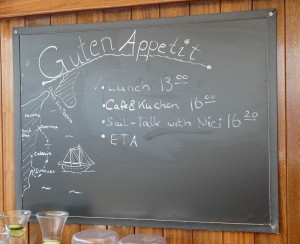 Guten Appetit
Lunch 13 00
Café & Kuchen 16 00
Sail-Talk with Nici 16 20
ETA